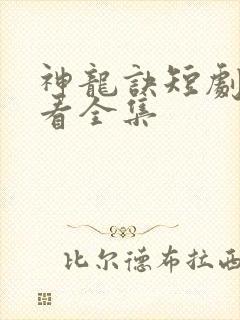 神龍訣短劇
看全集
比尔德布拉西